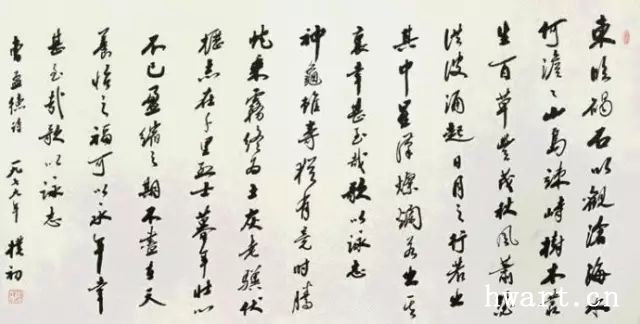 東臨碣石以觀滄海水
何澹々山島竦峙樹木叢
生百草豐茂秋風蕭瑟
洪波涌起日月之行若出
其中星漢燦爛若出其
裏幸甚至哉歌以詠志
神龜雖壽猶有竟時騰
蛇乘霧終為土灰老驥伏
櫪志在千里烈士暮年壯心
不已盈縮之期不盡在天
養怡之福可以永年幸
甚至哉歌以詠志
曹孟德詩 一九七年 樸初
hwart.cn